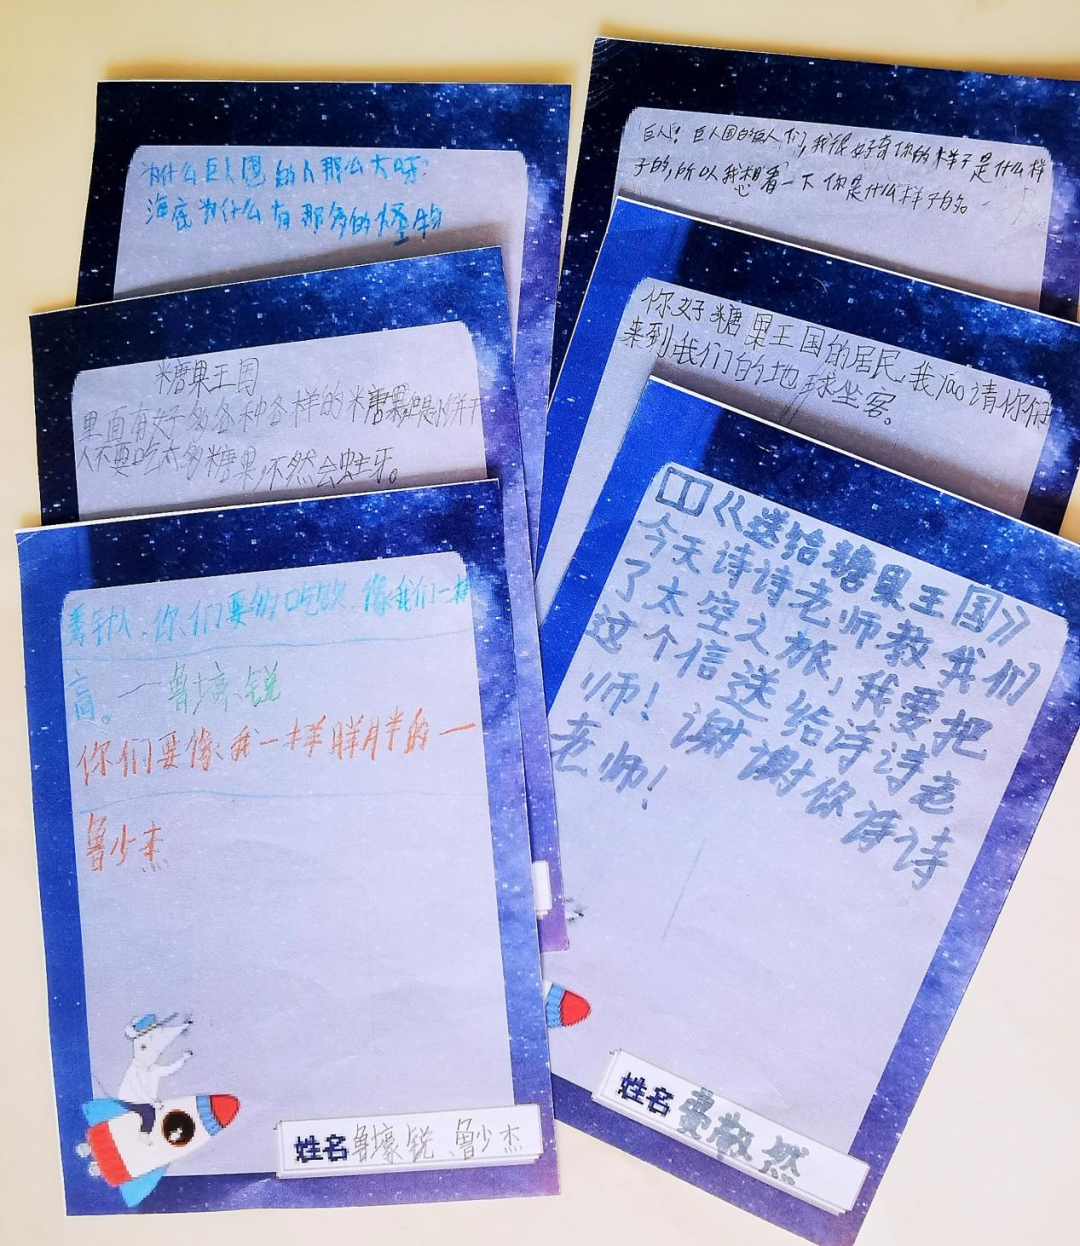 为什么巨人国的人那么大呀
海底为什么有那多的怪物
糖果王国
里面有好多各种各样的糖果
人不要吃太多糖果,不然会蛀牙。
你们要多吃饭,像我们一样
高。——鲁壕锐
你们要像我一样胖胖的一
鲁少杰
姓名 鲁壕锐、鲁少杰
巨人! 巨人国的巨人们,我很好奇你的样子是什么样
子的,所以我想看一下你是什么样子的。
你好糖果王国的居民,我 请你们
来到我们的地球坐客。
《送给糖果王国》
今天诗诗老师教我们
了太空之旅,我要把
这个信送给诗诗老
师!谢谢你诗诗
老师!
姓名 费散然